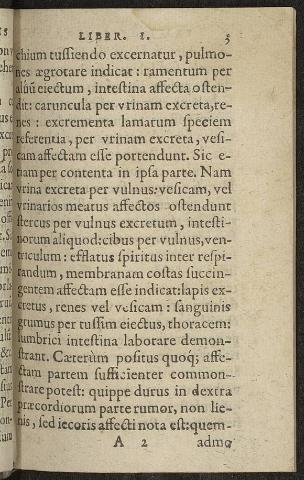 LIBER. I. 5
chium tussiendo excernatur, pulmo-
nes ægrotare indicat: ramentum per
aluũ eiectum, intestina affecta osten-
dit: caruncula per vrinam excreta, re-
nes: excrementa lamarum speciem
referentia, per vrinam excreta, vesi-
cam affectam esse portendunt. Sic e-
tiam per contenta in ipsa parte. Nam
vrina excreta per vulnus: vesicam, vel
vrinarios meatus affectos ostendunt
stercus per vulnus excretum, intesti-
norum aliquod: cibus per vulnus, ven-
triculum: efflatus spiritus inter respi-
randum, membranam costas succin-
gentem affectam esse indicat: lapis ex-
cretus, renes vel vesicam: sanguinis
grumus per tussim eiectus, thoracem:
lumbrici intestina laborare demon-
strant. Cæterùm positus quoq; affe-
ctam partem sufficienter common-
strare potest: quippe durus in dextra
præcordiorum parte tumor, non lie-
nis, sed iecoris affecti nota est: quem-
A 2 admo